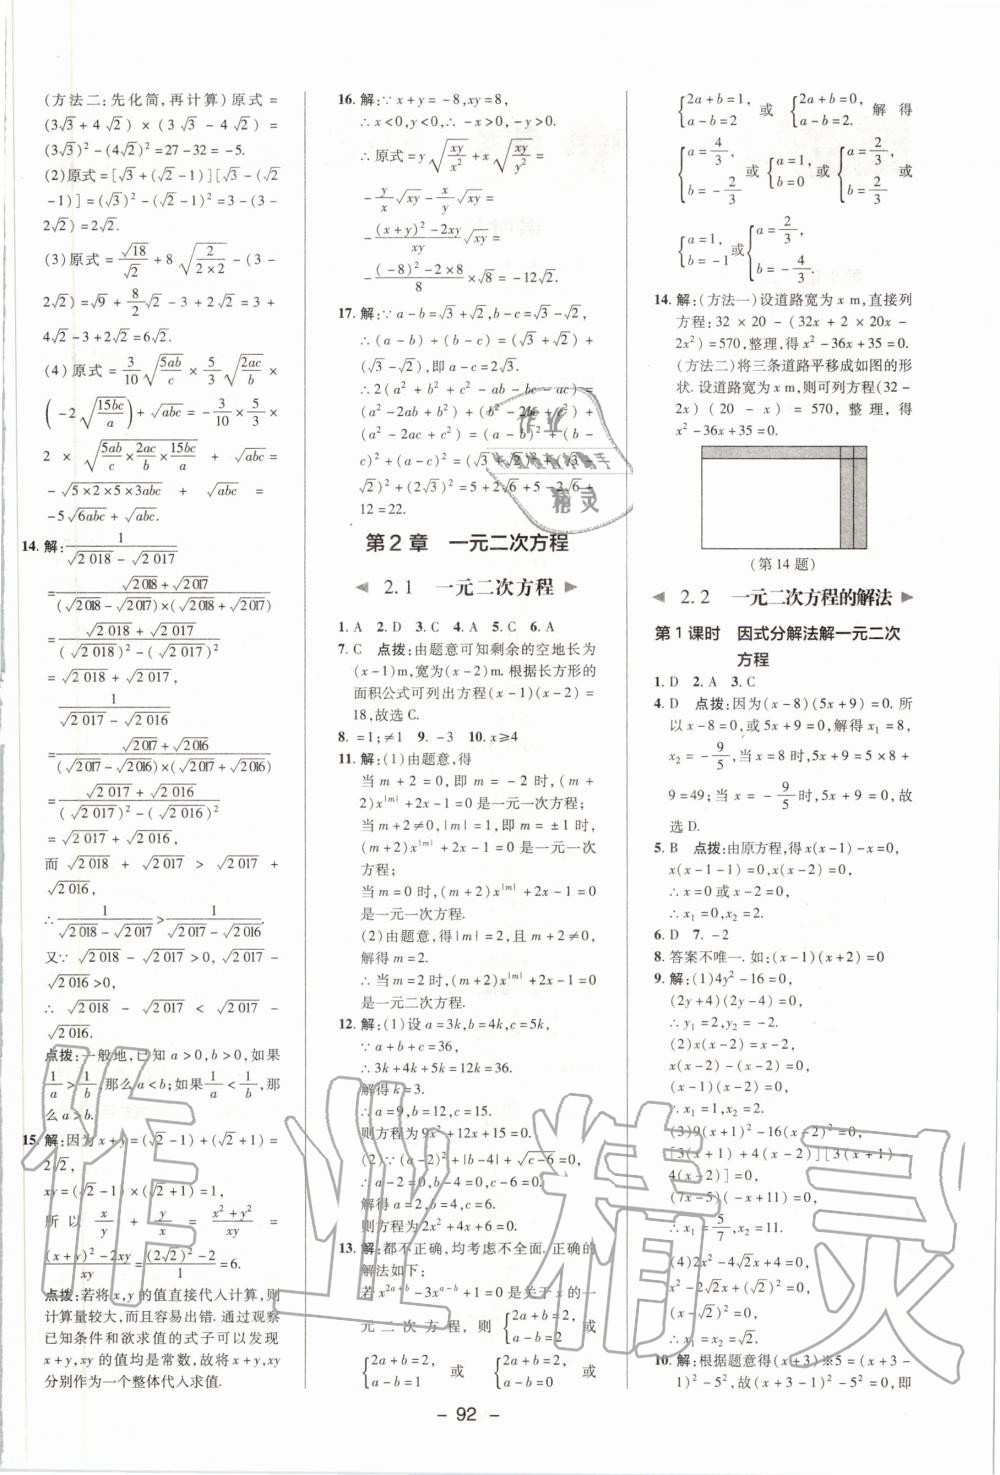 (方法二:先化简,再计算)原式=
(3√3+4√2)×(3√3-4√2)=
(3√3)²-(4√2)²=27-32=-5.
(2)原式=[√3+(√2-1)][√3-(√2
-1)]=(√3)²-(√2-1)²=3-(3-
2√2)=2√2.
(3)原式=√18/√2+8√(2/(2×2))-(3-
2√2)=√9+8/2√2-3+2√2=3+
4√2-3+2√2=6√2.
(4)原式=3/10√(5ab/c)×5/3√(2ac/b)×
(-2√(15bc/a))+√abc=-3/10×5/3×
2×√(5ab/c×2ac/b×15bc/a)+√abc=
-√(5×2×5×3abc)+√abc=
-5√6abc+√abc.
14.解:1/(√2018-√2017)
=(√2018+√2017)/((√2018-√2017)×(√2018+√2017))
=(√2018+√2017)/((√2018)²-(√2017)²)
=√2018+√2017,
1/(√2017-√2016)
=(√2017+√2016)/((√2017-√2016)×(√2017+√2016))
=(√2017+√2016)/((√2017)²-(√2016)²)
=√2017+√2016,
而√2018+√2017>√2017+
√2016,
∴1/(√2018-√2017)>1/(√2017-√2016).
又∵√2018-√2017>0,√2017-
√2016>0,
∴√2018-√2017<√2017-
√2016.
点拨:一般地,已知a>0,b>0,如果
1/a>1/b,那么a<b;如果1/a<1/b,那
么a>b.
15.解:因为x+y=(√2-1)+(√2+1)=
2√2,
xy=(√2-1)×(√2+1)=1,
所以x/y+y/x=(x²+y²)/xy=
((x+y)²-2xy)/xy=((2√2)²-2)/1=6.
点拨:若将x,y的值直接代入计算,则
计算量较大,而且容易出错.通过观察
已知条件和欲求值的式子可以发现
x+y,xy的值均是常数,故将x+y,xy
分别作为一个整体代入求值.
16.解:∵x+y=-8,xy=8,
∴x<0,y<0,∴-x>0,-y>0.
∴原式=y√(xy/x²)+x√(xy/y²)=
-y/x√xy-x/y√xy=
-((x+y)²-2xy)/xy√xy=
-((-8)²-2×8)/8×√8=-12√2.
17.解:∵a-b=√3+√2,b-c=√3-√2,
∴(a-b)+(b-c)=(√3+√2)+
(√3-√2),即a-c=2√3.
∴2(a²+b²+c²-ab-bc-ac)=
(a²-2ab+b²)+(b²-2bc+c²)+
(a²-2ac+c²)=(a-b)²+(b-
c)²+(a-c)²=(√3+√2)²+(√3-
√2)²+(2√3)²=5+2√6+5-2√6+
12=22.
第2章 一元二次方程
2.1 一元二次方程
1.A 2.D 3.C 4.A 5.C 6.A
7.C 点拨:由题意可知剩余的空地长为
(x-1)m,宽为(x-2)m.根据长方形的
面积公式可列出方程(x-1)(x-2)=
18,故选C.
8.=1;≠1 9.-3 10.x≥4
11.解:(1)由题意,得
当m+2=0,即m=-2时,(m+
2)x^|m|+2x-1=0是一元一次方程;
当m+2≠0,|m|=1,即m=±1时,
(m+2)x^|m|+2x-1=0是一元一次
方程;
当m=0时,(m+2)x^|m|+2x-1=0
是一元一次方程.
(2)由题意,得|m|=2,且m+2≠0,
解得m=2.
∴当m=2时,(m+2)x^|m|+2x-1=0
是一元二次方程.
12.解:(1)设a=3k,b=4k,c=5k,
∵a+b+c=36,
∴3k+4k+5k=12k=36.
解得k=3.
∴a=9,b=12,c=15.
则方程为9x²+12x+15=0.
(2)∵(a-2)²+|b-4|+√(c-6)=0,
∴a-2=0,b-4=0,c-6=0.
解得a=2,b=4,c=6.
则方程为2x²+4x+6=0.
13.解:都不正确,均考虑不全面.正确的
解法如下:
若x^(2a+b)-3x^(a-b)+1=0是关于x的一
元二次方程,则{2a+b=2, a-b=2}或
{2a+b=2, a-b=1}或{2a+b=2, a-b=0}或
{2a+b=1, a-b=2}或{2a+b=0, a-b=2.}解得
{a=4/3, b=-2/3}或{a=1, b=0}或{a=2/3, b=2/3}或
{a=1, b=-1}或{a=2/3, b=-4/3.}
14.解:(方法一)设道路宽为x m,直接列
方程:32×20-(32x+2×20x-
2x²)=570,整理,得x²-36x+35=0.
(方法二)将三条道路平移成如图的形
状.设道路宽为x m,则可列方程(32-
2x)(20-x)=570,整理,得
x²-36x+35=0.
(第14题)
2.2 一元二次方程的解法
第1课时 因式分解法解一元二次
方程
1.D 2.A 3.C
4.D 点拨:因为(x-8)(5x+9)=0.所
以x-8=0,或5x+9=0,解得x₁=8,
x₂=-9/5,当x=8时,5x+9=5×8+
9=49;当x=-9/5时,5x+9=0,故
选D.
5.B 点拨:由原方程,得x(x-1)-x=0,
x(x-1-1)=0,x(x-2)=0,
∴x=0或x-2=0.
∴x₁=0,x₂=2.
6.D 7.-2
8.答案不唯一.如:(x-1)(x+2)=0
9.解:(1)4y²-16=0,
(2y+4)(2y-4)=0,
∴y₁=2,y₂=-2.
(2)x(x-2)=x-2,
x(x-2)-(x-2)=0,
(x-2)(x-1)=0,
∴x₁=2,x₂=1.
(3)9(x+1)²-16(x-2)²=0,
[3(x+1)+4(x-2)][3(x+1)-
4(x-2)]=0,
(7x-5)(-x+11)=0,
∴x₁=5/7,x₂=11.
(4)2x²-4√2x+4=0,
x²-2√2x+(√2)²=0,
(x-√2)²=0,
∴x₁=x₂=√2.
10.解:根据题意得(x+3)※5=(x+3-
1)²-5²,故(x+3-1)²-5²=0,即
- 92 -
作业精灵
作业
精灵